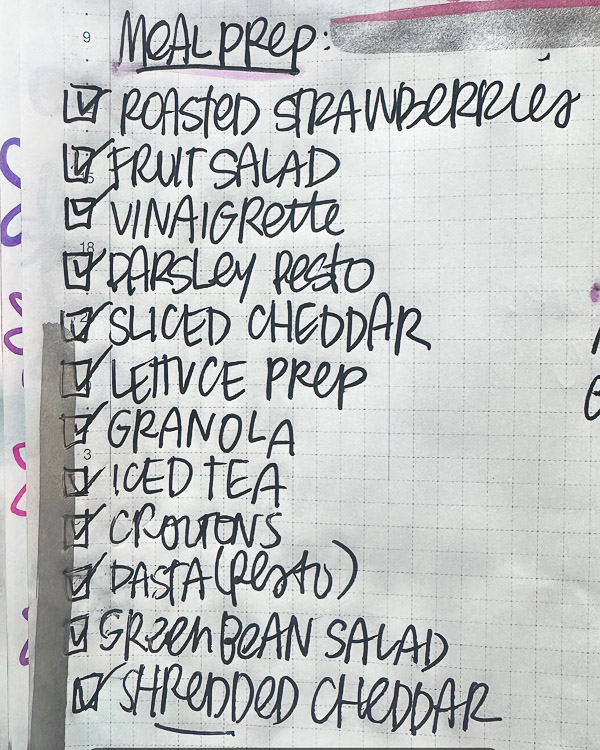 9
MEAL PREP:
ROASTED STRAWBERRIES
FRUIT SALAD
VINAIGRETTE
18
PARSLEY PESTO
SLICED CHEDDAR
LETTUCE PREP
GRANOLA
3
ICED TEA
CROUTONS
PASTA (PESTO)
GREEN BEAN SALAD
SHREDDED CHEDDAR